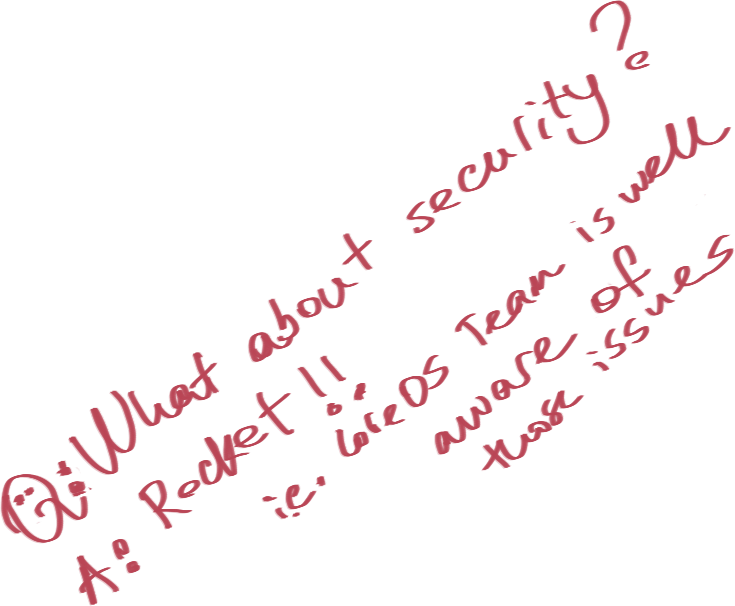 Q: What about security?
A: Rocket!!
i.e. CoreOS Team is well
aware of
those issues